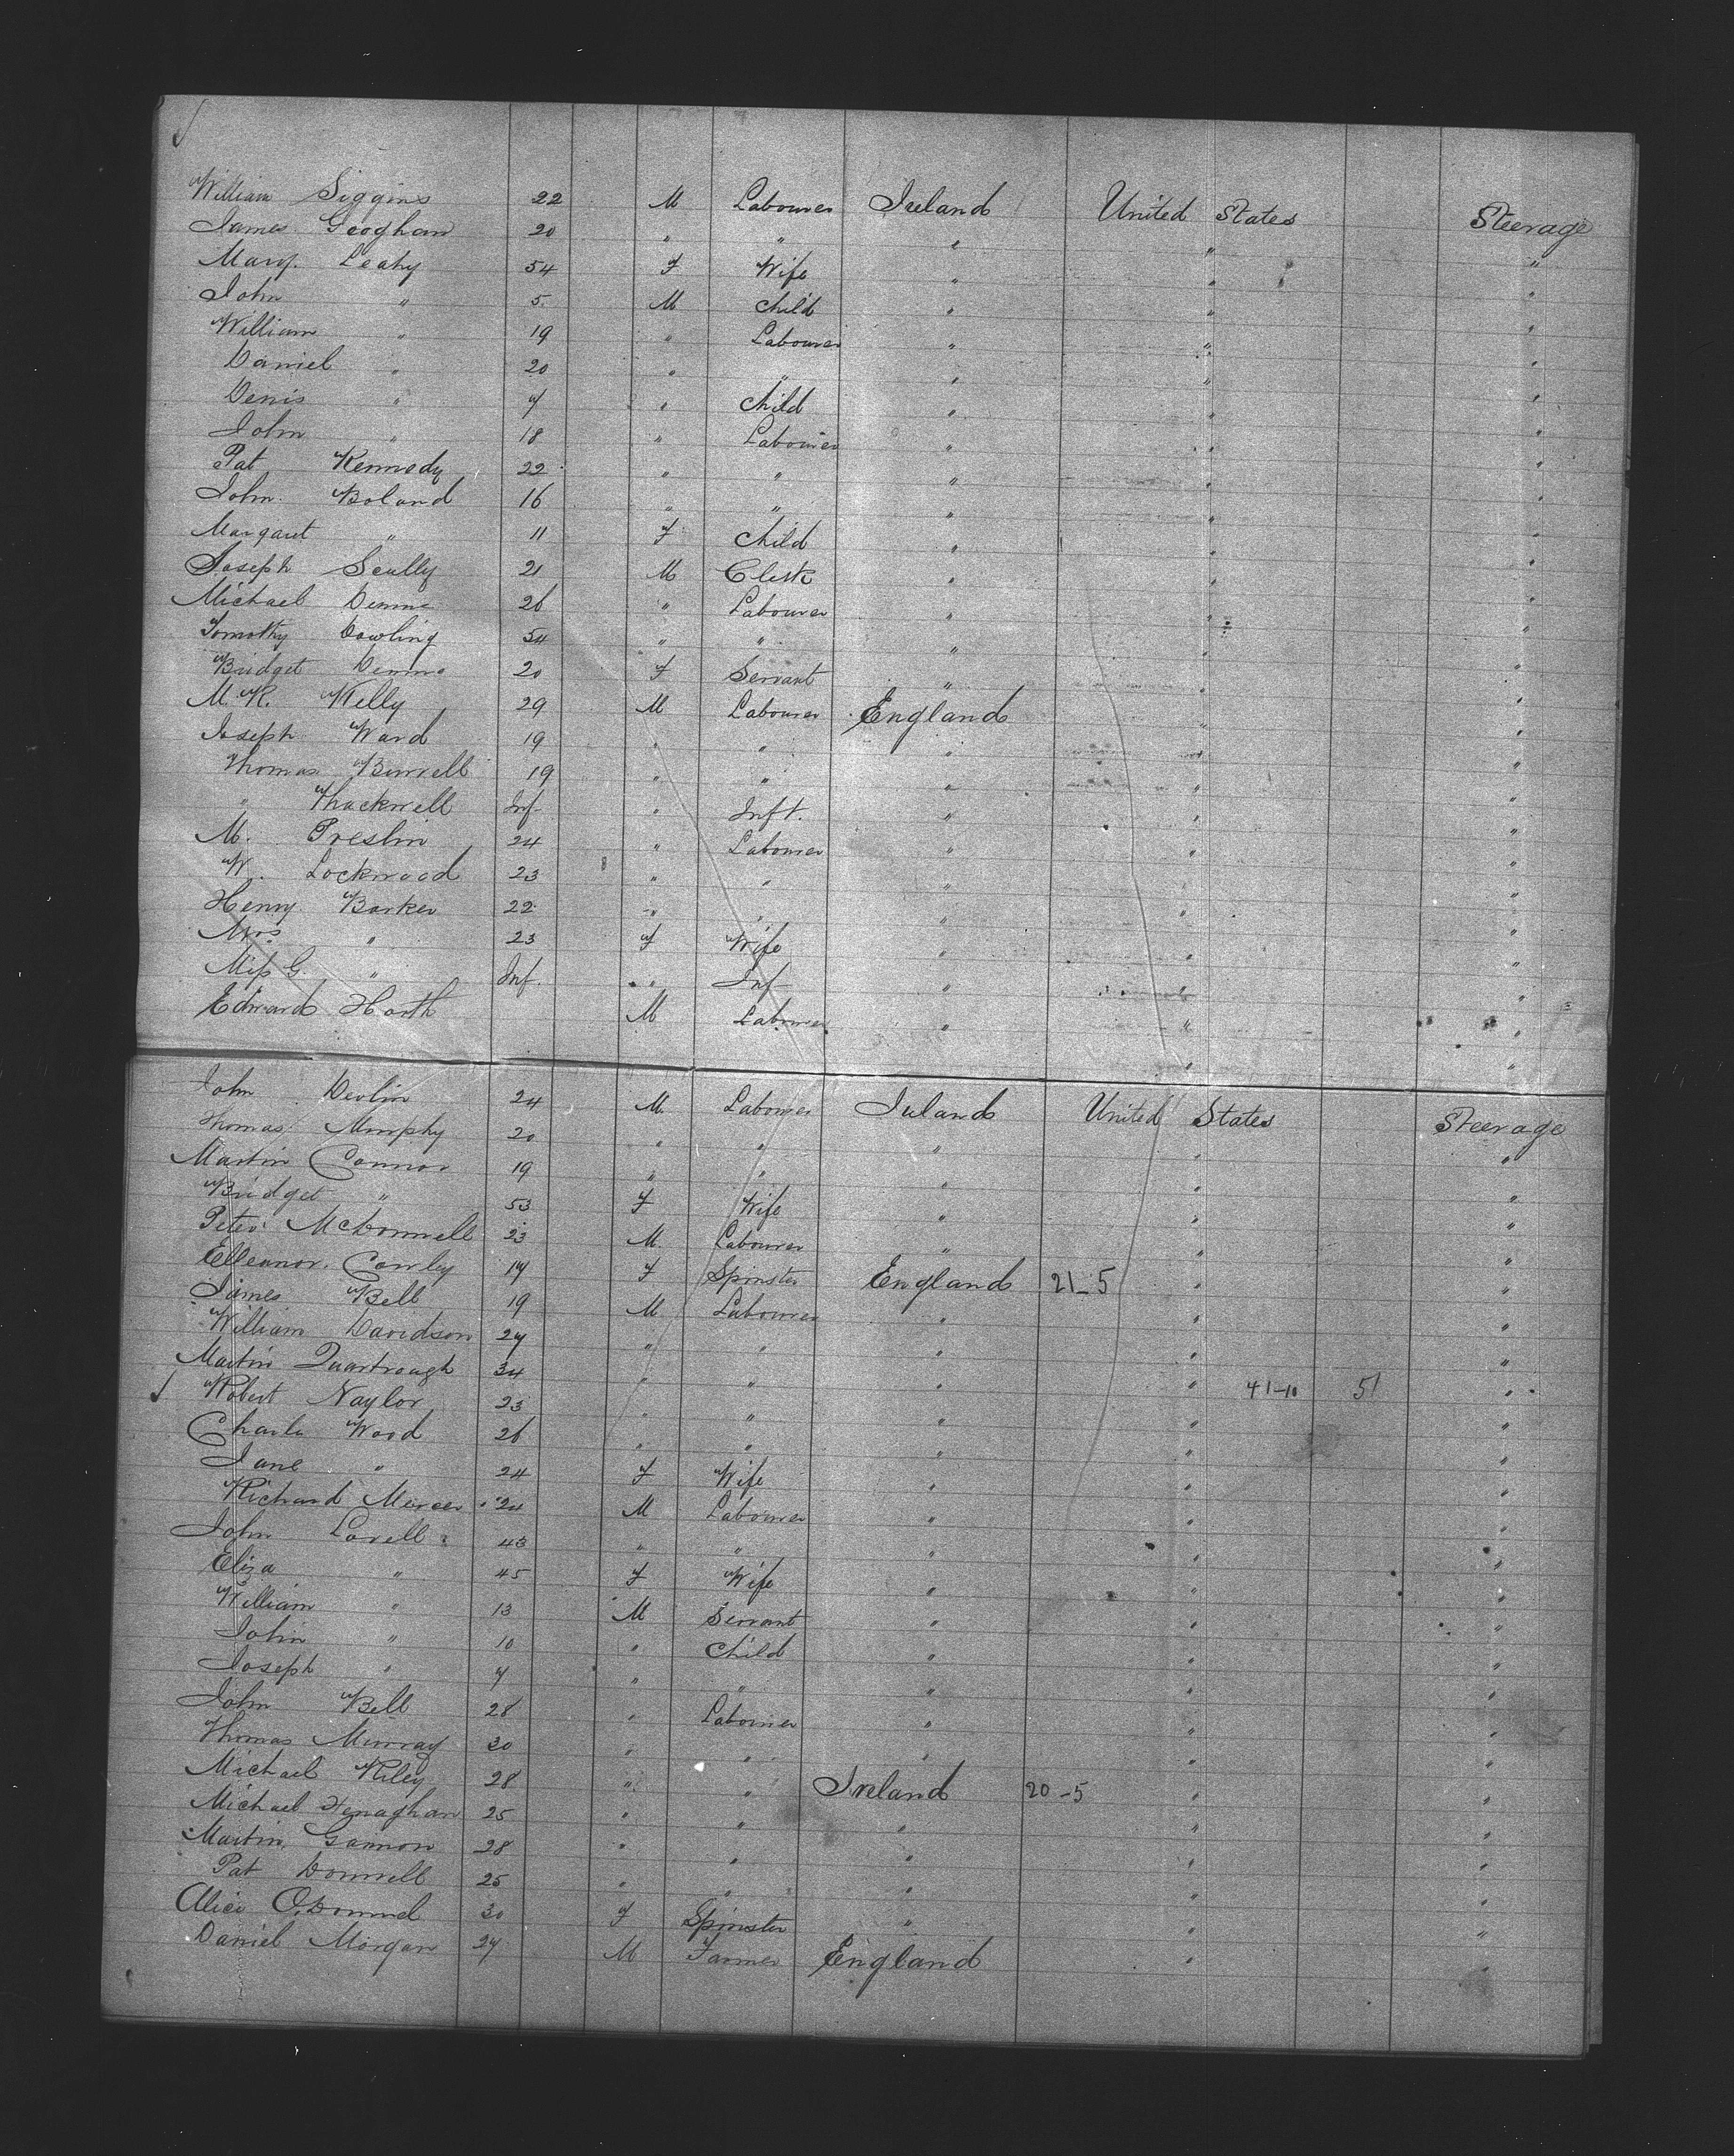 William Siggins 22 M Labourer Ireland United States Steerage
James Geoghan 20 " " " " "
Mary Leahy 54 F Wife " " "
John " 5 M Child " " "
William " 19 " Labourer " " "
Daniel " 20 " " " " "
Denis " 7 " Child " " "
John " 18 " Labourer " " "
Pat Kennedy 22 " " " " "
John Boland 16 " " " " "
Margaret " 11 F Child " " "
Joseph Scully 21 M Clerk " " "
Michael 26 " Labourer " " "
Tomothy Dowling 54 " " " " "
Bridget 20 F Servant " " "
M. K. Kelly 29 M Labourer England " "
Joseph Ward 19 " " " " "
Thomas Burrell 19 " " " " "
" Thackwell Inf. " Inft. " " "
M. Preslin 24 " Labourer " " "
W. Lockwood 23 " " " " "
Henry Barker 22 " " " " "
Mrs " 23 F Wife " " "
Miss G. " Inf. " Inf " " "
Edward Horth M Labourer " " "
John Devlin 24 M Labourer Ireland United States Steerage
Thomas Murphy 20 " " " " "
Martin Connor 19 " " " " "
Bridget " 53 F Wife " " "
Peter McDonnell 23 M Labourer " " "
Elleanor Cowley 17 F Spinster England 21-5 " "
James Bell 19 M Labourer " " "
William Davidson 27 " " " " "
Martin Quartrough 34 " " " " 41-10 51 "
Robert Naylor 23 " " " " "
Charles Wood 26 " " " " "
Jane " 24 F Wife " " "
Richard Mercer 24 M Labourer " " "
John Lovell 43 " " " " "
Eliza " 45 F Wife " " "
William " 13 M Servant " " "
John " 10 " Child " " "
Joseph " 7 " " " " "
John Bell 28 " Labourer " " "
Thomas Murray 30 " " " " "
Michael Riley 28 " " Ireland 20-5 " "
Michael Henaghan 25 " " " " "
Martin Gannon 28 " " " " "
Pat Donnell 25 " " " " "
Alice O.Donnel 30 F Spinster " " "
Daniel Morgan 27 M Farmer England " "